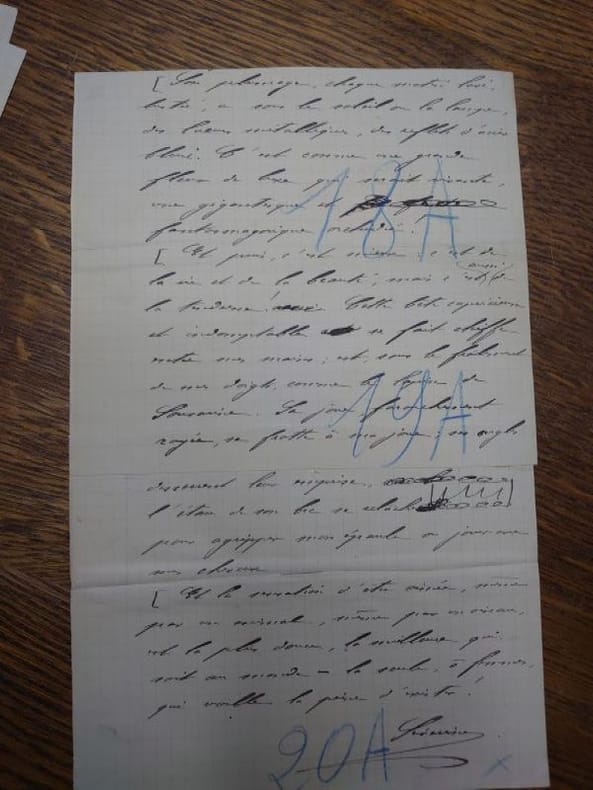 [ Son plumage, chaque matin
lustré, a sous le soleil ou la lampe,
des lueurs métalliques, des reflets d'acier
bleui. C'est comme une grande
fleur de luxe qui serait vivante,
une gigantesque et
fantasmagorique orchidée.
18A
[ Et puis, c'est mieux : c'est de
la vie et de la beauté, mais c'est aussi de
la tendresse. Cette bête capricieuse
et indomptable se fait chiffe
entre mes mains ; est, sous le frôlement
de mes doigts, comme le lapin de
Sa joue, farouchement
rayée, se frotte à ma joue ; ses ongles
19A
desserrent leur emprise,
l'étau de son bec se relâche
pour agripper mon épaule ou jouer avec
mes cheveux.
[ Et la sensation d'être aimée, même
par un animal, même par un oiseau,
est la plus douce, la meilleure qui
soit au monde — la seule, ô femmes,
qui vaille la peine d'exister !
Séverine
20A